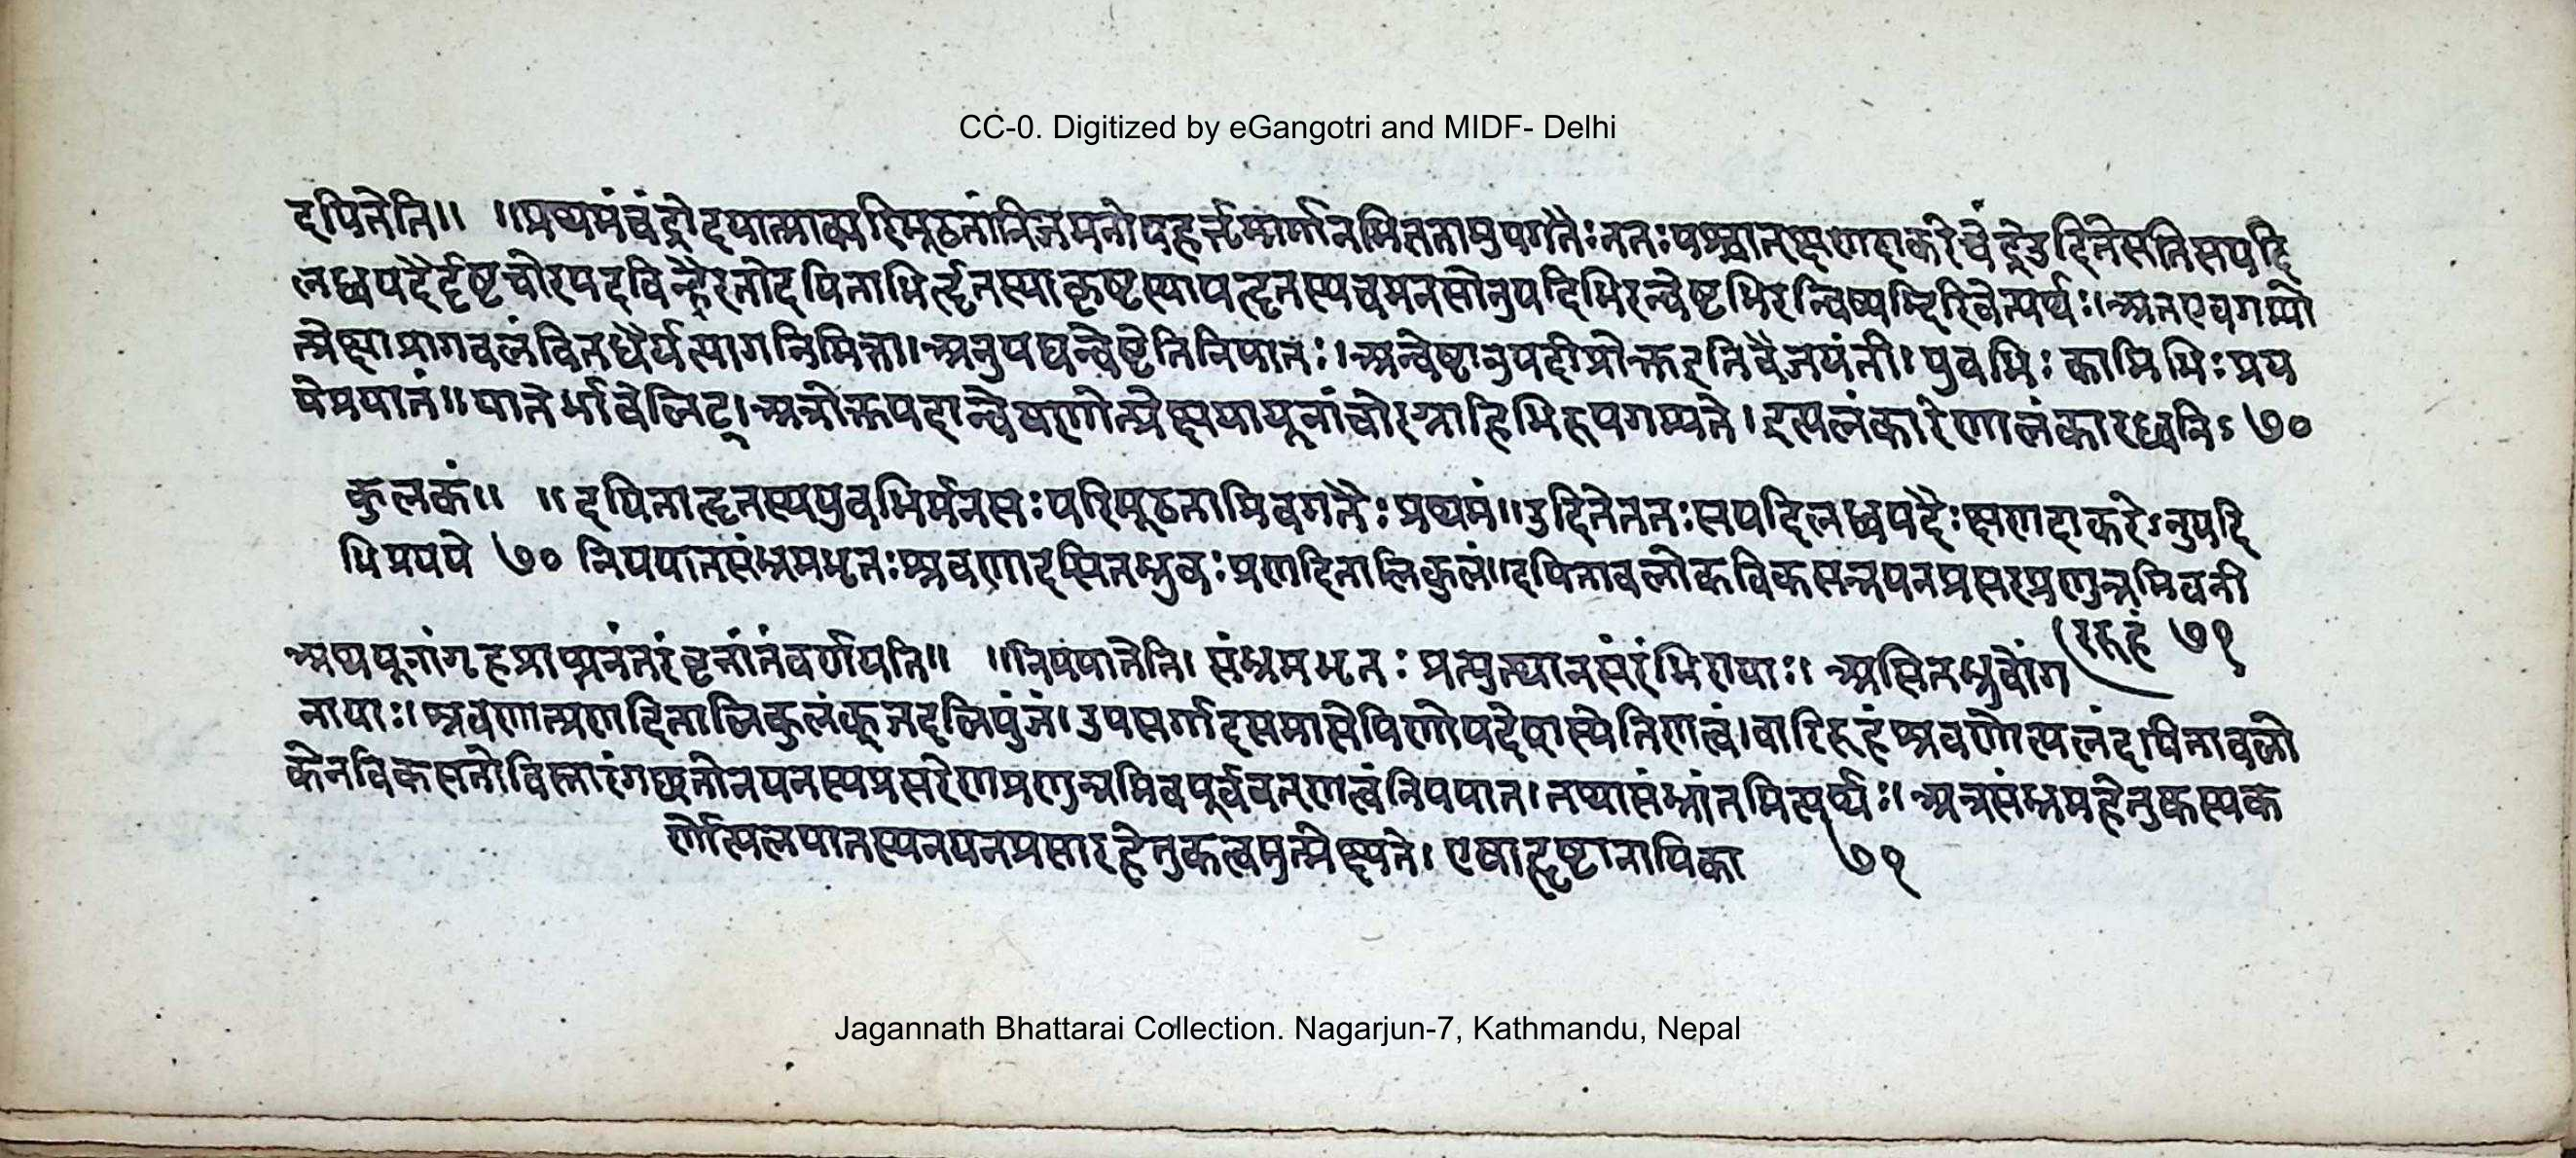 CC-0. Digitized by eGangotri and MIDF- Delhi
दयितेति॥ ॥प्रथमंचंद्रोदयात्प्राक्परिमूढतांनिजमनोपहर्तृमार्गानभिज्ञतामुपगतैःततःपश्चात्क्षणदाकरेचंद्रेउदितेसतिसपदि
लब्धपदैर्दृष्टचोरपदचिन्हैरतोदयिताभिर्हृतस्याकृष्टस्यापहृतस्यचमनसोनुपदिभिरन्वेष्टभिरन्विष्यद्भिरिवेत्यर्थः।अतएवगम्यो
त्प्रेक्षाप्रागवलंवितधैर्यत्यागनिमित्ता।अनुपद्यन्वेष्टेतिनिपातः।अन्वेष्टानुपदीप्रोक्तइतिवैजयंती।युवभिः कामिभिःप्रय
येप्रयातं॥यातेर्भावेलिट्।अत्रोक्तपदान्वेषणोत्प्रेक्षयायूनांचोरग्राहिभिरुपगम्यते।इत्यलंकारेणालंकारध्वनिः ७०
कुलकं॥ ॥दयिताहृतस्ययुवभिर्मनसःपरिमूढतामिवगतैःप्रथमं॥उदितेततःसपदिलब्धपदैःक्षणदाकरेऽनुपदि
भिःप्रयये ७० निपपातसंभ्रमभृतःश्रवणादसितभ्रुवःप्रणदितालिकुलं॥दयितावलोकविकसन्नयनप्रसरप्रणुन्नमिववारि
रुहं ७१
अथयूनांगृहप्राप्त्यनंतरंवृत्तांतंवर्णयति॥ ॥निपपातेति। संभ्रमभृतः प्रत्युत्थानसंरंभिण्याः। असितभ्रुवोंग
नायाः।श्रवणात्प्रणदितालिकुलंकूजदलिपुंजं।उपसर्गादसमासेपिणोपदेशस्येतिणत्वं।वारिरुहंश्रवणोत्पलंदयितावलो
केनविकसतोविस्तारंगच्छतोनयनस्यप्रसरेणप्रणुन्नमिवपूर्ववत्णत्वंनिपपात।तथासंभ्रांतमित्यर्थः। अत्रसंभ्रमहेतुकस्यक
र्णोत्पलपातस्यनयनप्रसारहेतुकत्वमुत्प्रेक्ष्यते। एषाहृष्टानायिका ७१
Jagannath Bhattarai Collection. Nagarjun-7, Kathmandu, Nepal